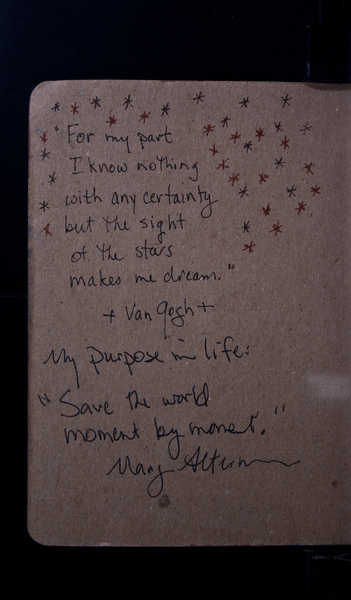 "For my part
I know nothing
with any certainty
but the sight
of the stars
makes me dream."
+ Van Gogh +
My purpose in life:
"Save the world
moment by moment."